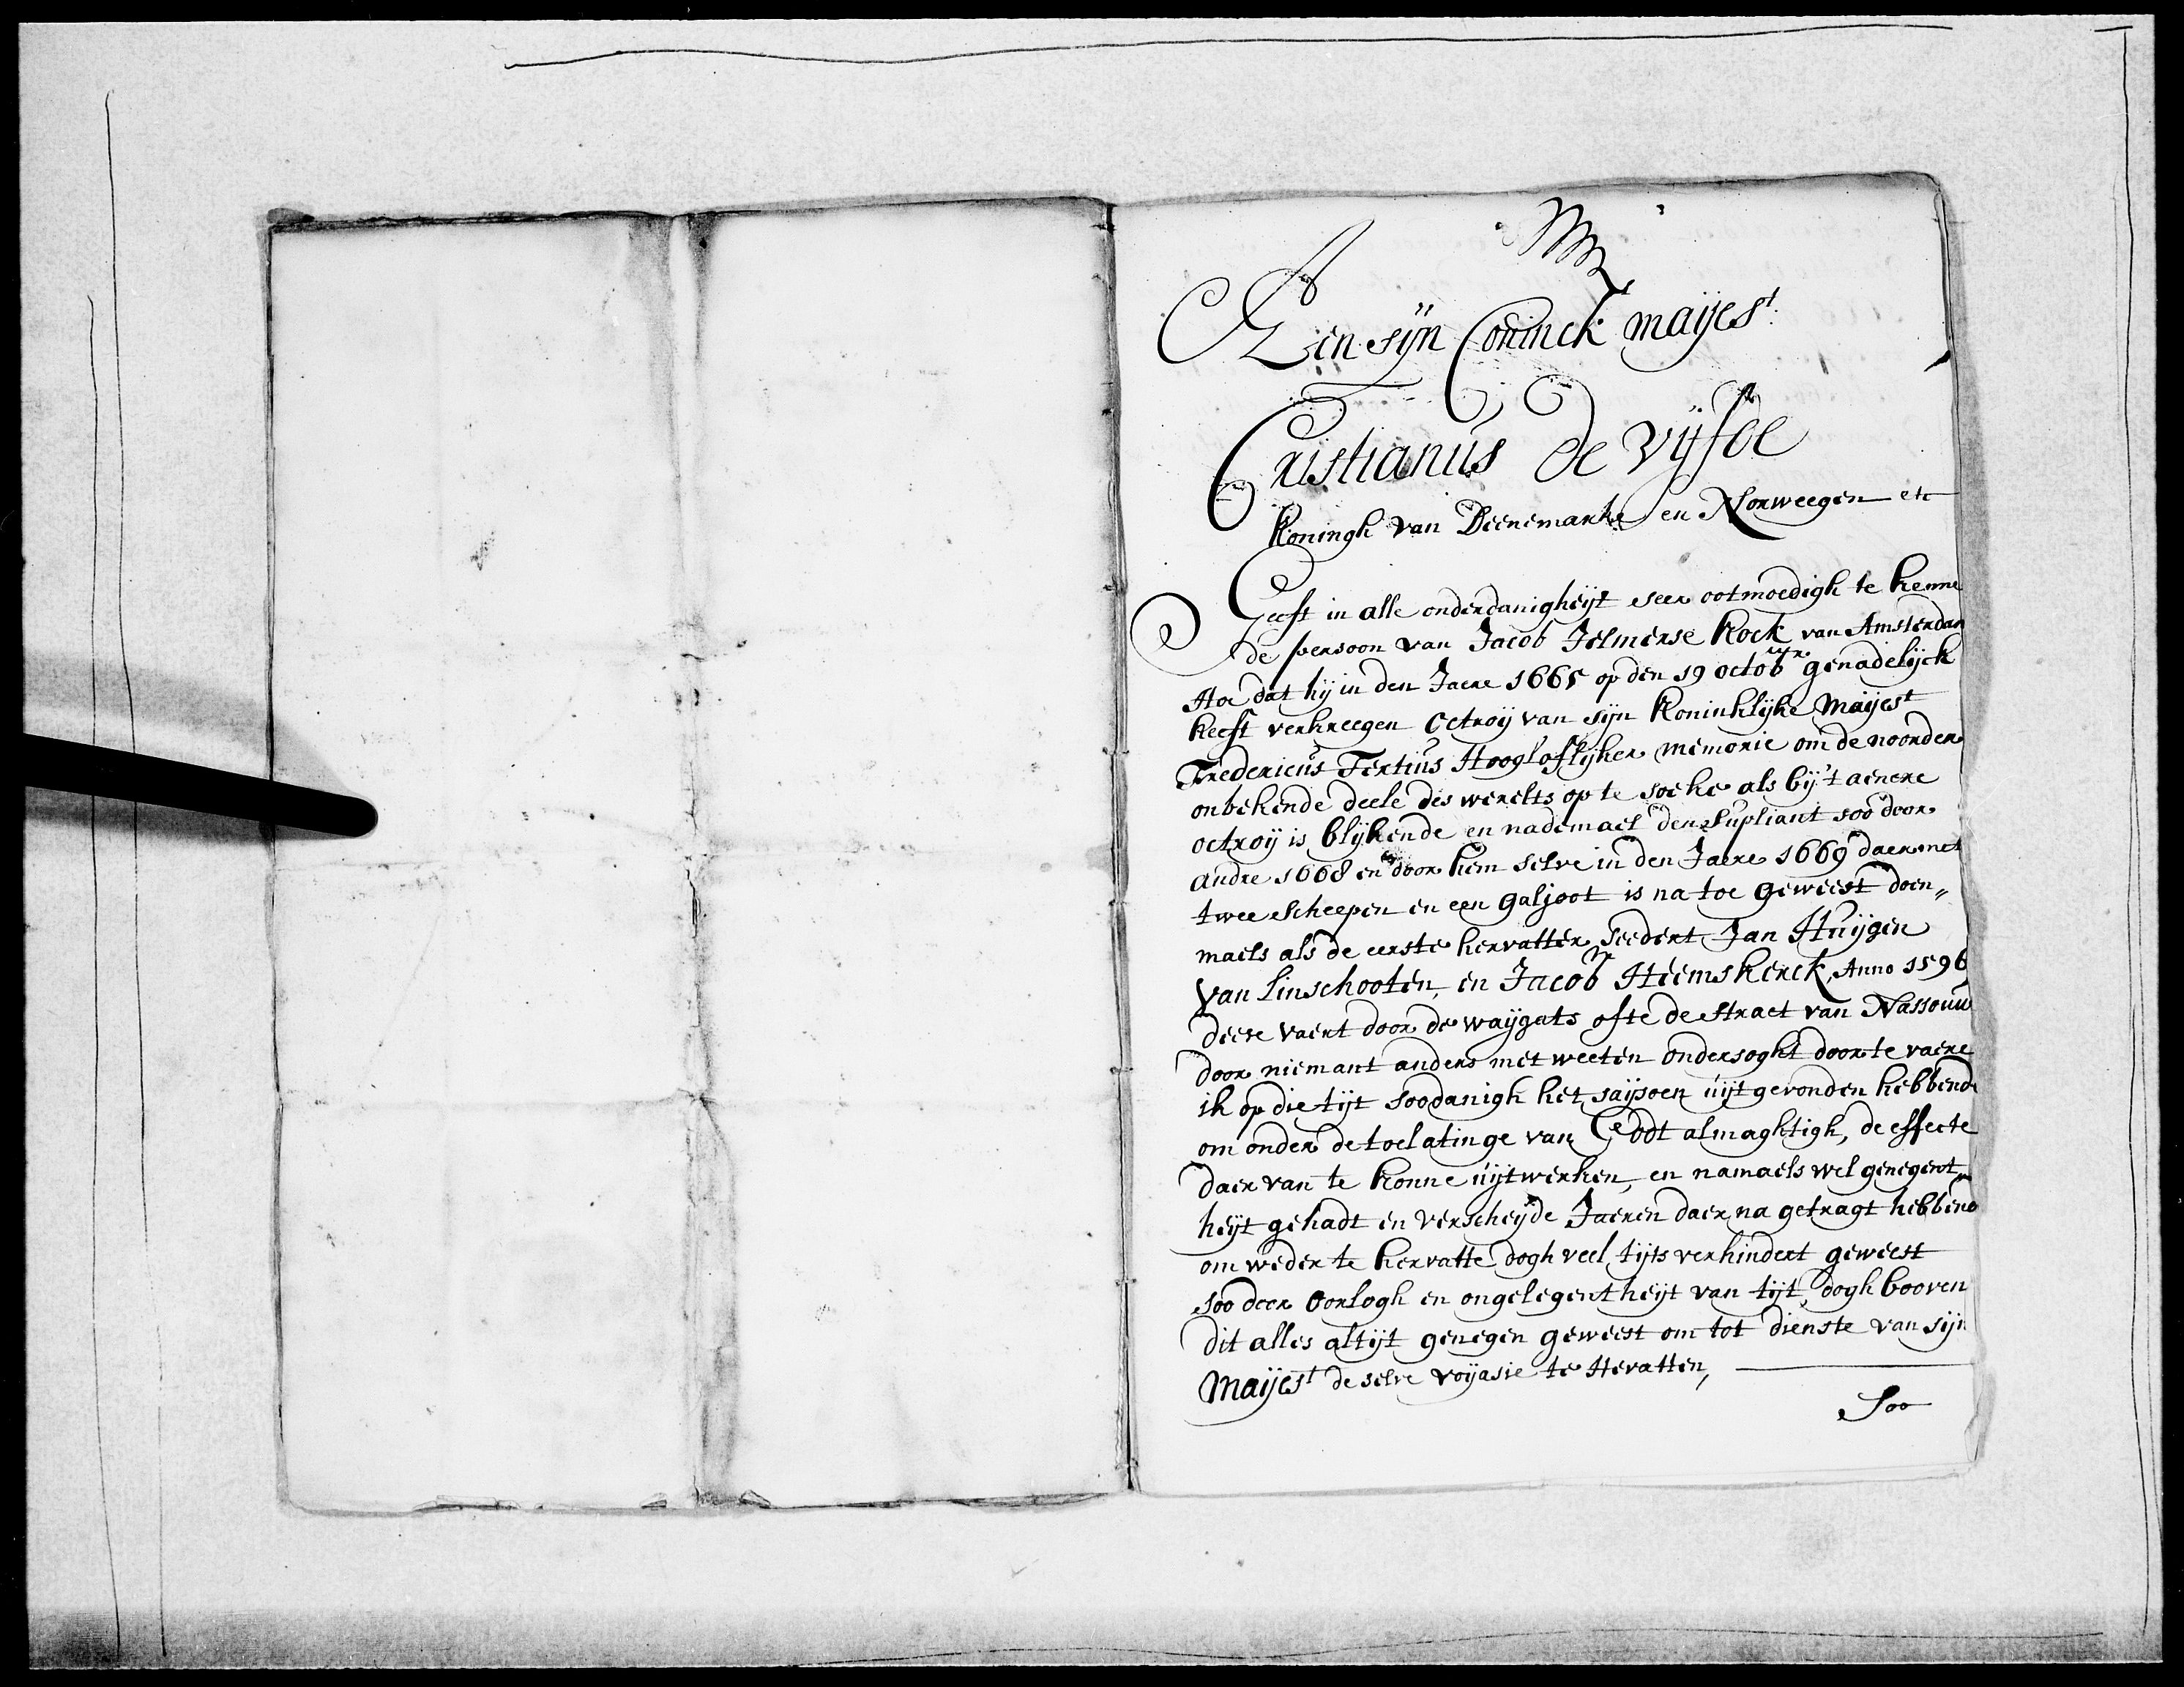 Aen sijn Coninck maijest:
Cristianus de vijfde
Koningh van Deenemarke en Norweegen etc
Geeft in alle onderdanigheijt seer ootmoedigh te kenne
de persoon van Jacob Jelmerse Kock van Amsterdam
Hoe dat hij in den Jaere 1665 op den 19 octob genadelijck
heeft verkreegen Octroij van sijn Koninklijke Maijest
Fredericus Tertius Hooglofflijker memorie om de noorder
onbekende deele des werelts op te soeke als bij 't aenere
octroij is blijkende en nademael den Supliant soo door
andre 1668 en door hem selve in den Jaere 1669 daer met
twee scheepen en een galjoot is na toe geweest doen„
maels als de eerste hervatter seedert Jan Huijgen
van Linschooten, en Jacob Heemskerck, Anno 1596
deese vaert door de waijgats ofte de straet van Nassouw
door niemant anders met weeten ondersoght door te vaere
ik op die tijt soodanigh het saijsoen uijt gevonden hebbende
om onder de toelatinge van Godt almaghtigh, de effecte
daer van te konne uijtwerken, en namaels wel genegent„
heijt gehadt en verscheijde Jaeren daer na getragt hebbend
om weder te hervatte dogh veel tijts verhindert geweest
soo deer oorlogh en ongelegentheijt van tijt, dogh booven
dit alles altijt genegen geweest om tot dienste van sijn
Maijest de selve voijasie te Hervatten,
Soo